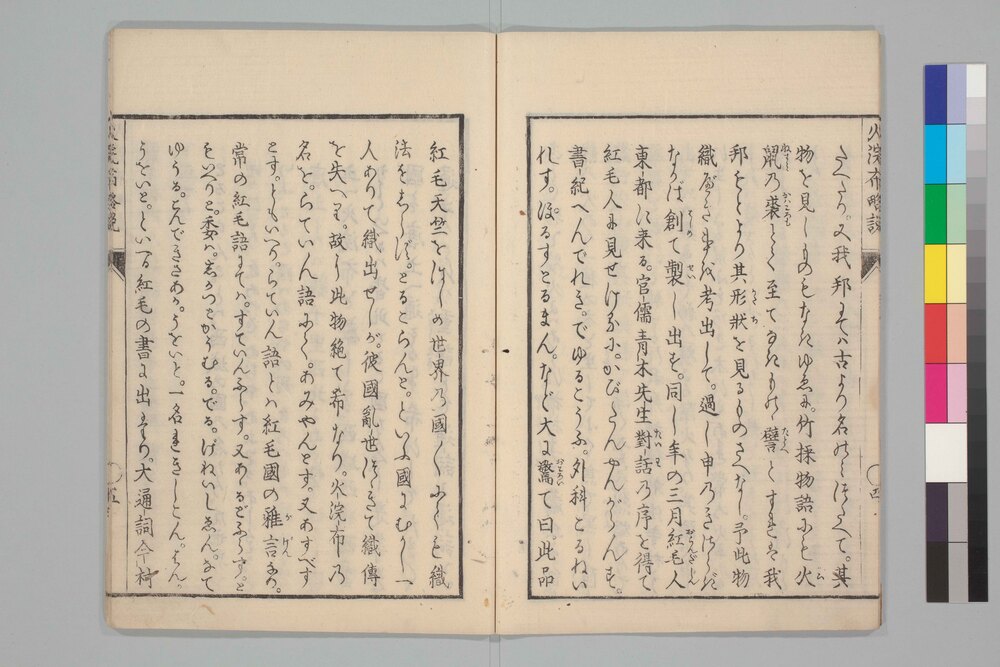 火浣布略説
さへたり。又我邦にては古より名のみ伝へて。其
物を見しものもなきゆゑに。竹採物語にも火
鼠の裘とて至てなきものゝ譬とすれは我
邦もとより其形状を見るものさへなし。予此物
織べきことを考出して。過し申のきさらきに
なかは創て製し出せ。同し年の三月紅毛人
東都に来る。官儒青木先生對話の序を得て
紅毛人に見せけるに。かびたんやんがらんす。
書紀へんでれき。でゆるこうふ。外科こるねい
れす。ほるすとるまん。など大に驚て曰。此品
紅毛天竺をはしめ世界の國々にても織
法をしらず。とるこらんと。といふ國にむかし一
人ありて織出せしが。彼國亂世つゞきて織傳
を失へり。故に此物絶て希なり。火浣布の
名を。らていん語にて。あみやんとす。又あすべす
とす。ともいへり。らていん語とは紅毛國の雅言なり。
常の紅毛語にては。すていんふらす。又あるどふらす。と
もいへりと。委は。
ゆうる。こんでききさあか。うをいと。一名
うをいと。といへる紅毛の書に出たり。大通詞今村